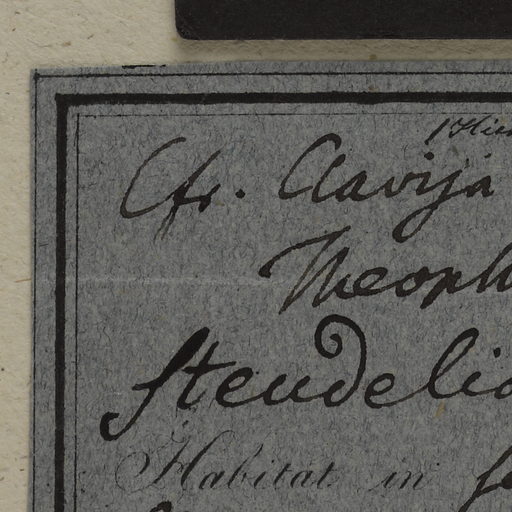 Cfr. Clavija
Theoph
Steudelia
Habitat in